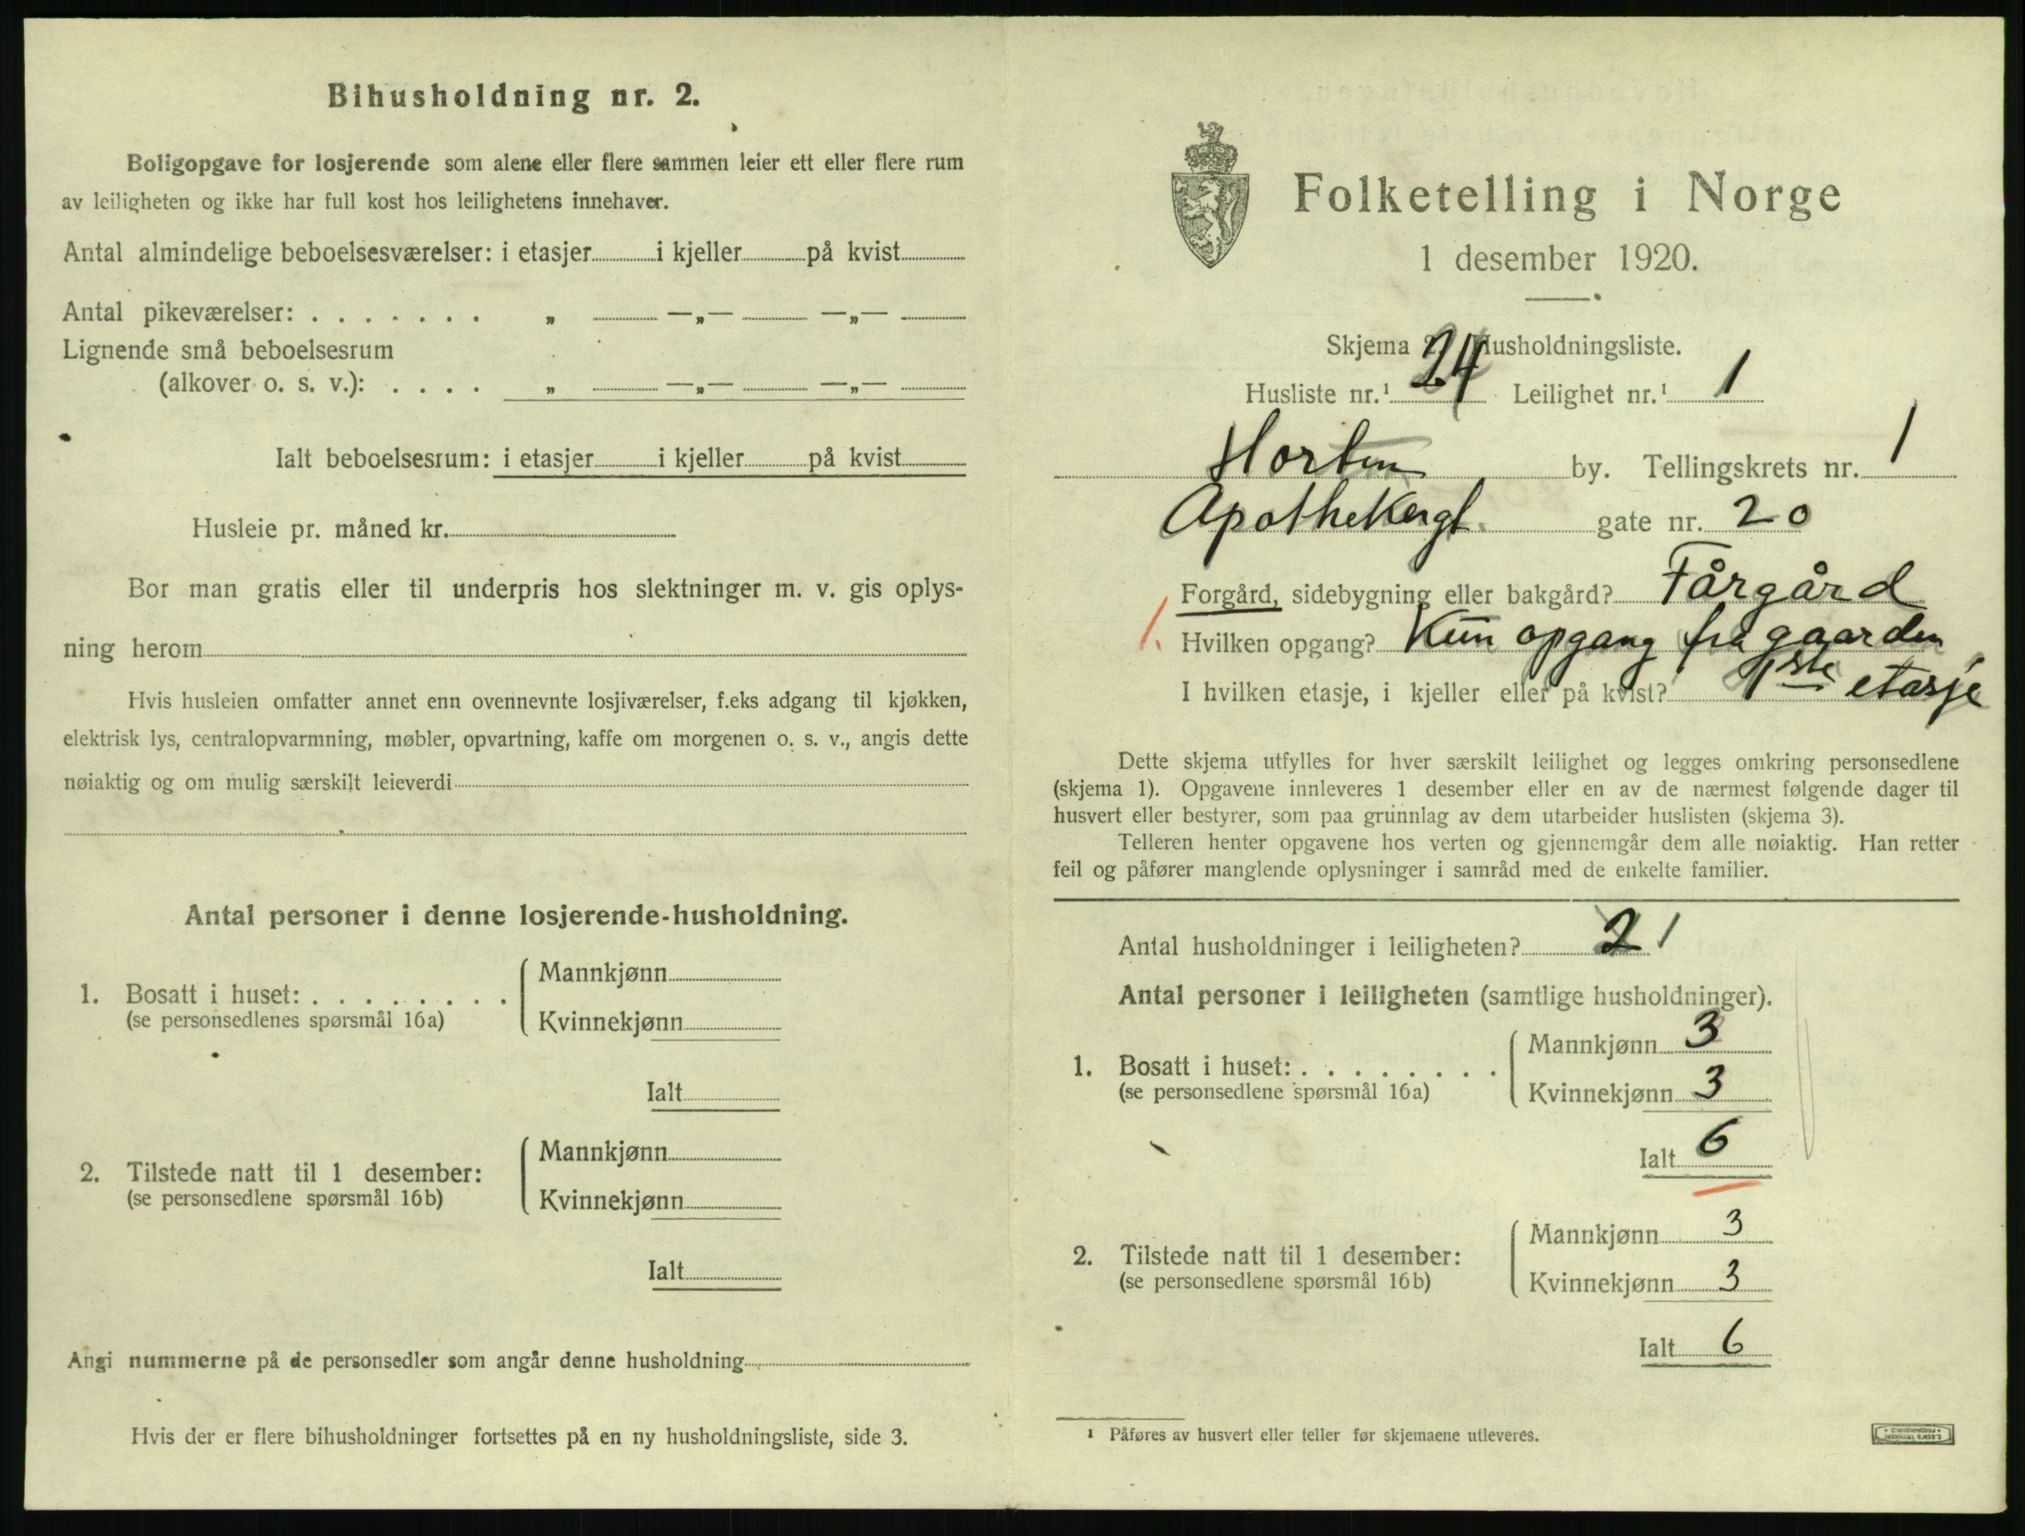 Bihusholdning nr. 2.
Boligopgave for losjerende som alene eller flere sammen leier ett eller flere rum
av leiligheten og ikke har full kost hos leilighetens innehaver.
Antal almindelige beboelsesværelser: i etasjer i kjeller på kvist
Antal pikeværelser: . . . . . . . „ —„— —„—
Lignende små beboelsesrum
(alkover o. s. v.): . . . . „ —„— —„—
Ialt beboelsesrum: i etasjer i kjeller på kvist
Husleie pr. måned kr.
Bor man gratis eller til underpris hos slektninger m. v. gis oplys-
ning herom
Hvis husleien omfatter annet enn ovennevnte losjiværelser, f.eks adgang til kjøkken,
elektrisk lys, centralopvarmning, møbler, opvartning, kaffe om morgenen o. s. v., angis dette
nøiaktig og om mulig særskilt leieverdi
Antal personer i denne losjerende-husholdning.
1. Bosatt i huset: . . . . . . . .
(se personsedlenes spørsmål 16a)
Mannkjønn
Kvinnekjønn
Ialt
2. Tilstede natt til 1 desember:
(se personsedlene spørsmål 16b)
Mannkjønn
Kvinnekjønn
Ialt
Angi nummerne på de personsedler som angår denne husholdning
Hvis der er flere bihusholdninger fortsettes på en ny husholdningsliste, side 3.
Folketelling i Norge
1 desember 1920.
Skjema 2. Husholdningsliste.
Husliste nr.¹ 24 Leilighet nr.¹ 1
Horten by. Tellingskrets nr. 1
Apothekergt. gate nr. 20
Forgård, sidebygning eller bakgård? Fårgård
1. Hvilken opgang? Kun opgang fra gaarden
I hvilken etasje, i kjeller eller på kvist? 1ste etasje
Dette skjema utfylles for hver særskilt leilighet og legges omkring personsedlene
(skjema 1). Opgavene innleveres 1 desember eller en av de nærmest følgende dager til
husvert eller bestyrer, som paa grunnlag av dem utarbeider huslisten (skjema 3).
Telleren henter opgavene hos verten og gjennemgår dem alle nøiaktig. Han retter
feil og påfører manglende oplysninger i samråd med de enkelte familier.
Antal husholdninger i leiligheten? 2 1
Antal personer i leiligheten (samtlige husholdninger).
1. Bosatt i huset: . . . . . . . .
(se personsedlene spørsmål 16a)
Mannkjønn 3
Kvinnekjønn 3
Ialt 6
2. Tilstede natt til 1 desember:
(se personsedlene spørsmål 16b)
Mannkjønn 3
Kvinnekjønn 3
Ialt 6
¹ Påføres av husvert eller teller før skjemaene utleveres.